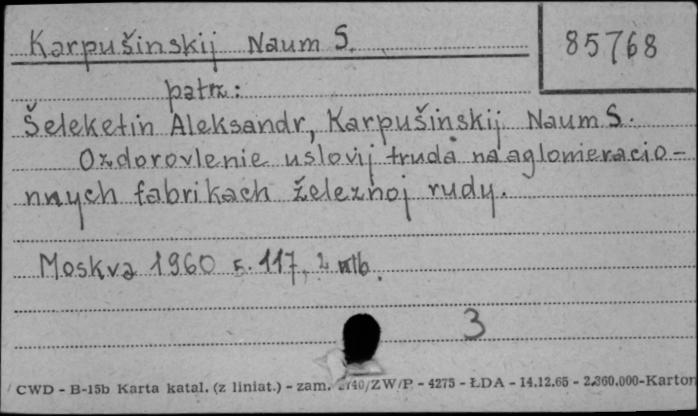 Karpušinskij Naum S.
85768
patrz:
Šeleketin Aleksandr, Karpušinskij Naum S.
Ozdorovlenie uslovij truda na aglomeracio-
nnych fabrikach železnoj rudy.
Moskva 1960 s. 117, 2 nlb.
3
CWD - B-15b Karta katal. (z liniat.) - zam. 2740/ZW/P - 4275 - ŁDA - 14.12.65 - 2.360.000-Karton